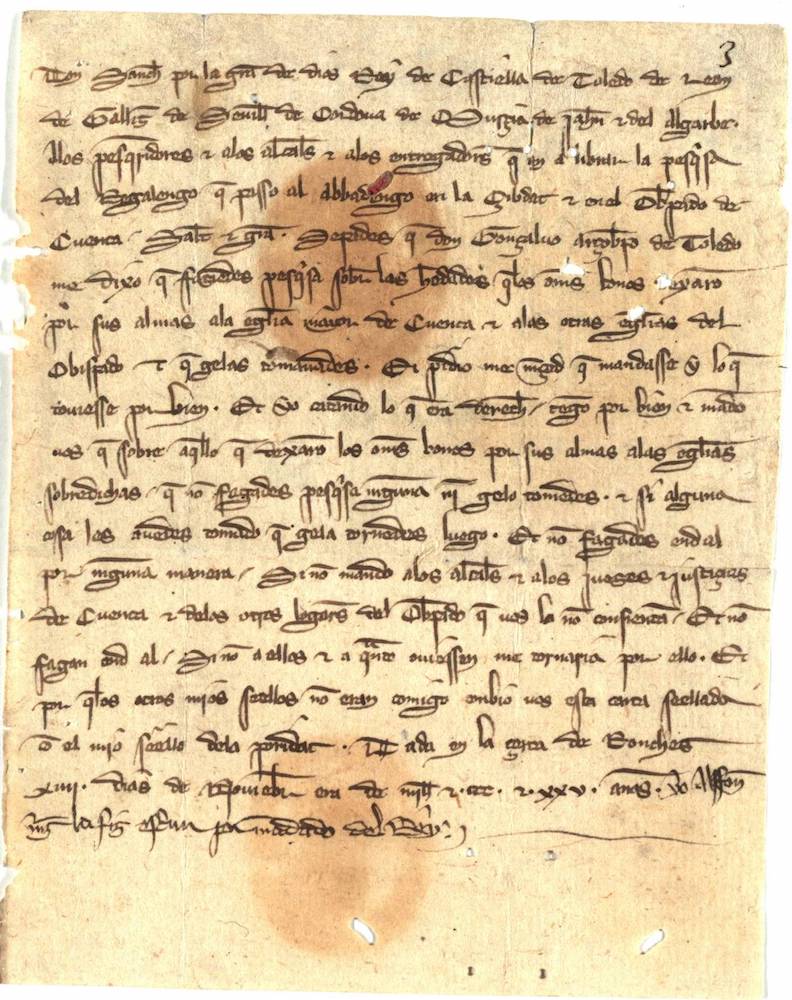 3
Don Sancho por la gra de dios Rey de Castiella de Toledo de Leon
de Galliz de Seuilla de Cordoua de Murcia de Jahn & del Algarbe.
Alos pesqridores & alos alcalls & alos entregadors q an a librar la pesqsa
del Regalengo q passo al abbadengo en la Cibdat & en el Obpado de
Cuenca. Salt & gra. Sepades q don Gonçaluo arçobpo de Toledo
me dixo q faziedes pesqsa sobre las hdades qlos oms bonos dexaro
por sus almas ala eglia maior de Cuenca & alas otras eglias del
Obispado & q gelas tomauades. Et pidio me mçed q mandasse y lo q
touiesse por bien. Et yo catando lo q era derecho tego por bien & mado
uos q sobre aqllo q dexaro los oms bonos por sus almas alas eglias
sobredichas q no fagades pesqsa ninguna ni gelo tomedes. & si alguna
cosa les auedes tomado q gela tornedes luego. Et no fagades end al
por ninguna manera. Si no mando alos alcalls & alos jueses & justiçias
de Cuenca & delos otros logars del Obpado q uos lo no consienta. Et no
fagan end al. Si no a ellos & a qnto ouiessen me tornaria por ello. Et
por qlos otros mios seellos no eran comigo enbio uos esta carta seellada
co el mio seello dela poridat. Dada en la çerca de Ronches
XIIII. dias de Nouiebr era de mill & ccc. & XXV. anos. Yo Alfon
escriuir por madado del Rey.